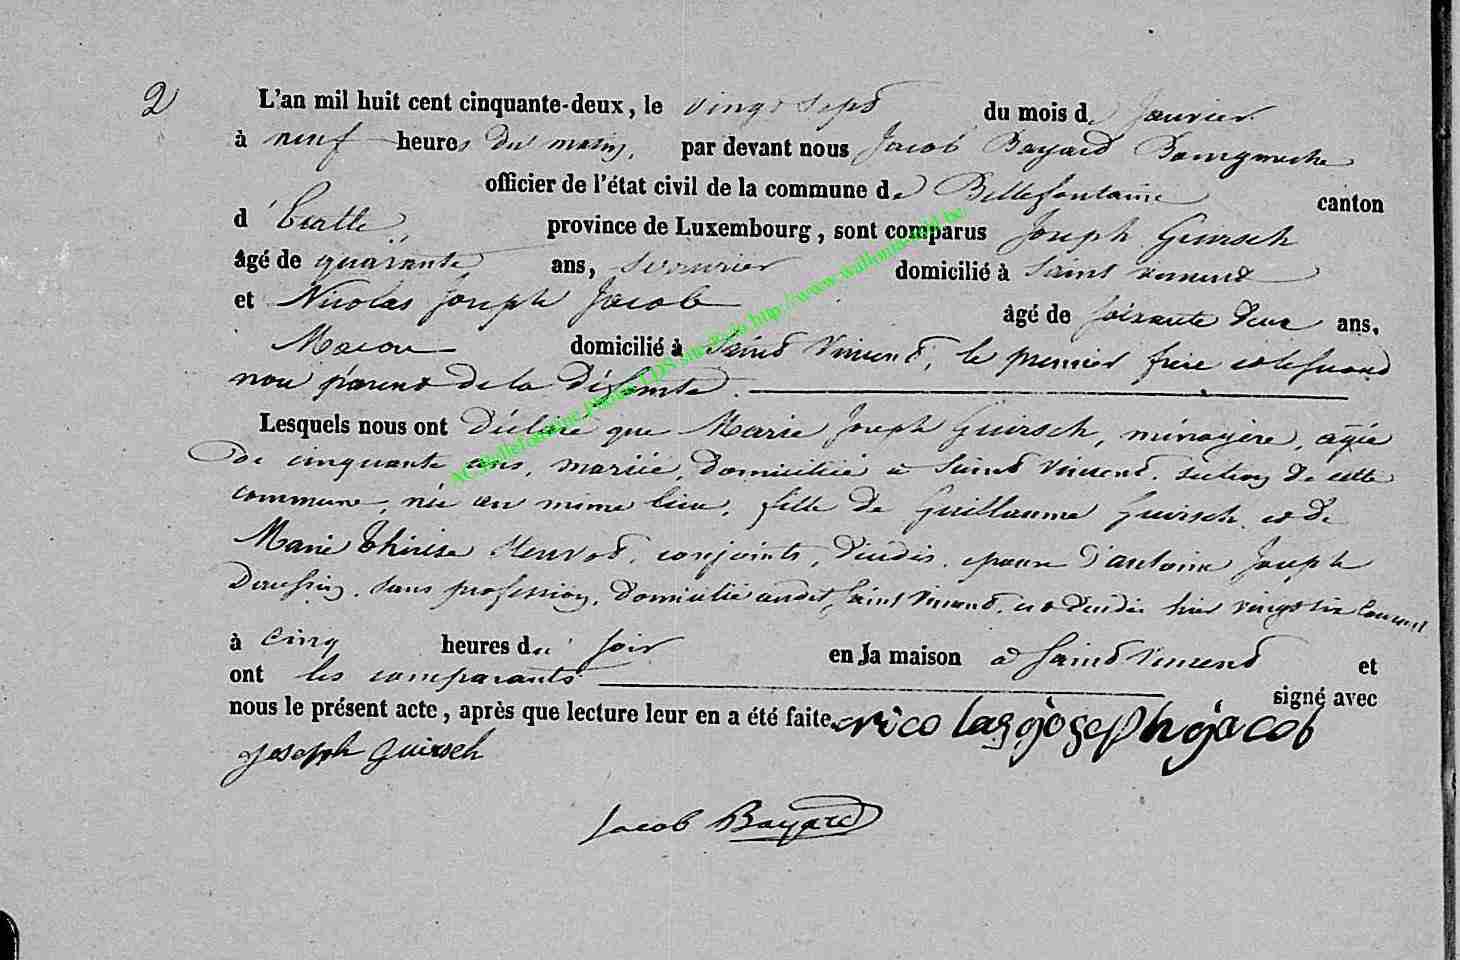 2
L'an mil huit cent cinquante-deux, le vingt sept du mois de Janvier
à neuf heures du matin, par devant nous Jacob Bayard Bourgmestre
officier de l'état civil de la commune de Bellefontaine canton
d' Etalle, province de Luxembourg, sont comparus Joseph Guirsch
âgé de quarante ans, serrurier domicilié à Saint Vincent
et Nicolas Joseph Jacob âgé de soixante deux ans,
Macon domicilié à Saint Vincent, le premier frère et le second
non parent de la défunte.
Lesquels nous ont Déclaré que Marie Joseph Guirsch, ménagère, agée
de cinquante ans, mariée, domiciliée à Saint Vincent, section de cette
commune, née au même lieu, fille de Guillaume Guirsch et de
Marie Thérèse conjoints, décédés, épouse d'antoine Joseph
sans profession, domicilié audit Saint Vincent, est décédée hier vingt six Courant
à Cinq heures du soir en la maison à Saint Vincent et
ont les comparants signé avec
nous le présent acte, après que lecture leur en a été faite. nicolas joseph jacob
Joseph Guirsch
Jacob Bayard